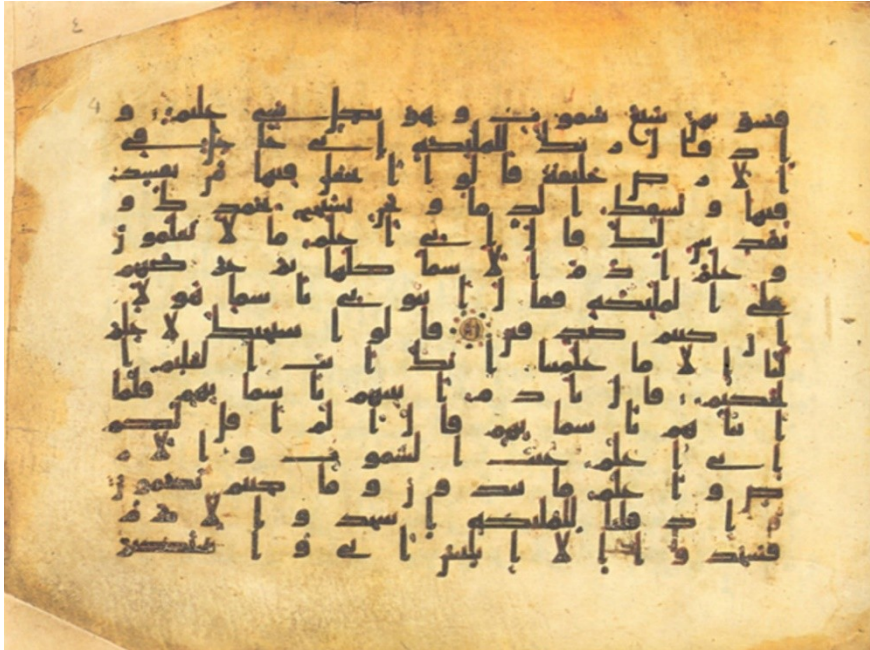 ٤
4
فسويهن سبع سموت و هو بكل شي عليم و
اذ قال ربك للمليكه اني جاعل في
الارض خليفة قالوا اتجعل فيها من يفسد
فيها و يسفك الدما و نحن نسبح بحمدك و
نقدس لك قال اني اعلم ما لا تعلمون
و علم ادم الاسما كلها ثم عرضهم
على المليكه فقال انبوني باسما هولا
ان كنتم صدقين قالوا سبحنك لا علم
لنا الا ما علمتنا انك انت العليم
الحكيم قال يادم انبيهم باسمايهم فلما
انباهم باسمايهم قال الم اقل لكم
اني اعلم غيب السموت و الار
ض و اعلم ما تبدون و ما كنتم تكتمون
و اذ قلنا للمليكه اسجدوا لادم
فسجدوا الا ابليس ابى و استكبر